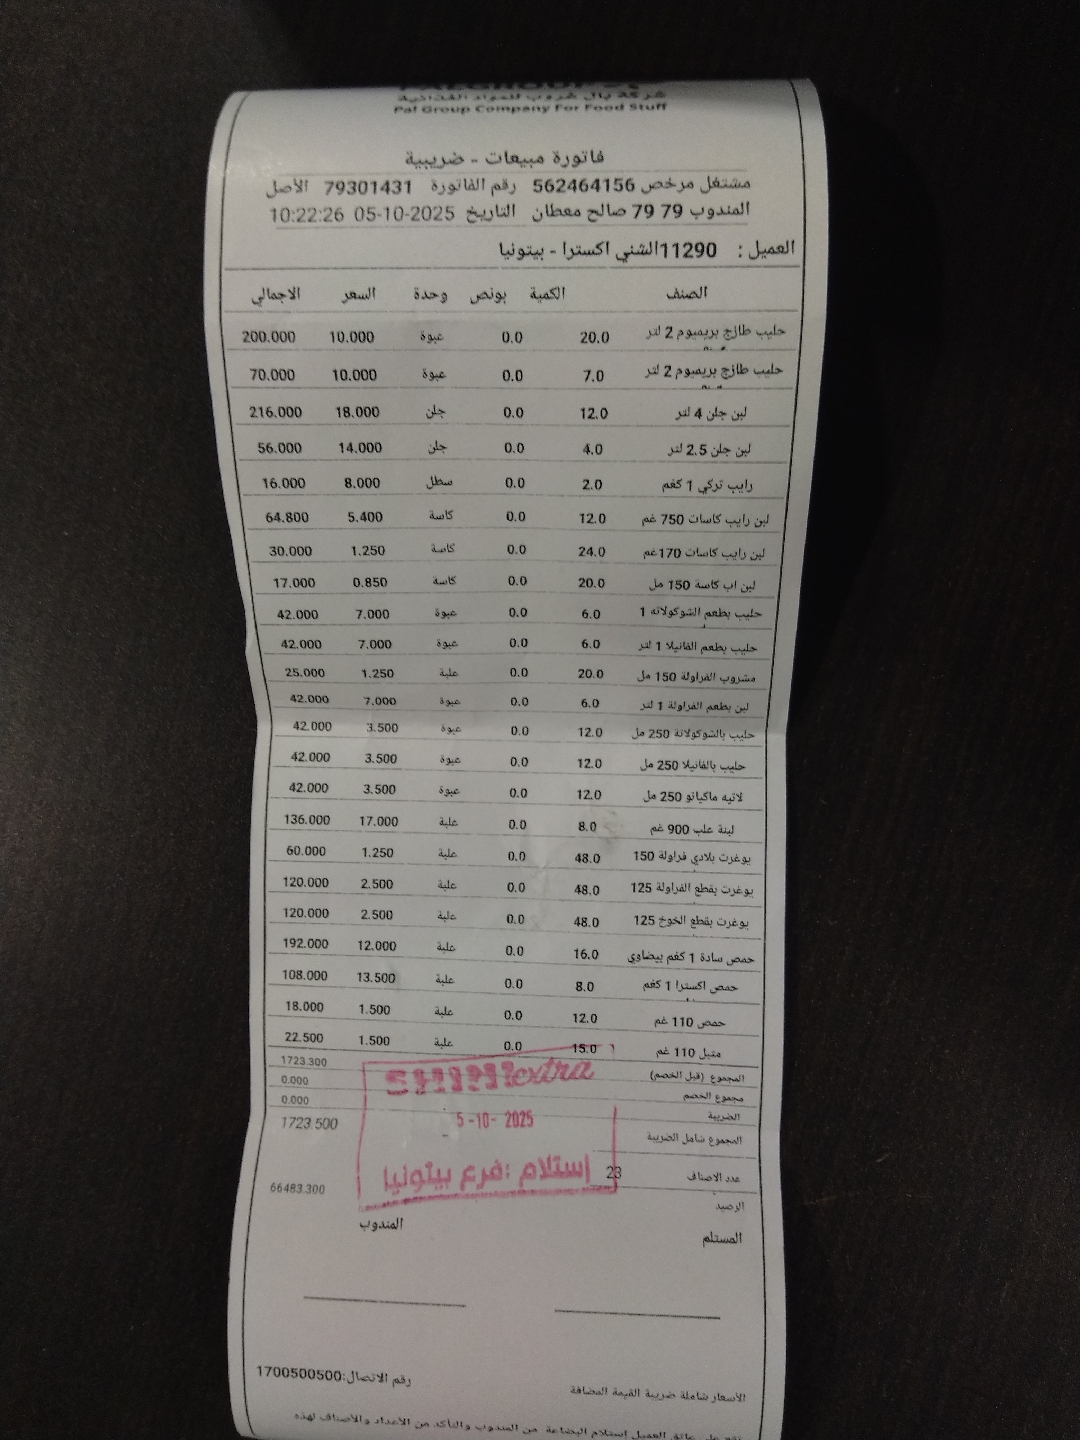 شركة بال جروب للمواد الغذائية
Pal Group Company For Food Stuff
فاتورة مبيعات - ضريبية
مشتغل مرخص 562464156 رقم الفاتورة 79301431 الأصل
المندوب 79 79 صالح معطان التاريخ 05-10-2025 10:22:26
العميل : 11290الشني اكسترا - بيتونيا
الصنف الكمية بونص وحدة السعر الاجمالي
حليب طازج بريميوم 2 لتر 20.0 0.0 عبوة 10.000 200.000
حليب طازج بريميوم 2 لتر 7.0 0.0 عبوة 10.000 70.000
لبن جلن 4 لتر 12.0 0.0 جلن 18.000 216.000
لبن جلن 2.5 لتر 4.0 0.0 جلن 14.000 56.000
رايب تركي 1 كغم 2.0 0.0 سطل 8.000 16.000
لبن رايب كاسات 750 غم 12.0 0.0 كاسة 5.400 64.800
لبن رايب كاسات 170غم 24.0 0.0 كاسة 1.250 30.000
لبن اب كاسة 150 مل 20.0 0.0 كاسة 0.850 17.000
حليب بطعم الشوكولاته 1 6.0 0.0 عبوة 7.000 42.000
حليب بطعم الفانيلا 1 لتر 6.0 0.0 عبوة 7.000 42.000
مشروب الفراولة 150 مل 20.0 0.0 علبة 1.250 25.000
لبن بطعم الفراولة 1 لتر 6.0 0.0 عبوة 7.000 42.000
حليب بالشوكولاتة 250 مل 12.0 0.0 عبوة 3.500 42.000
حليب بالفانيلا 250 مل 12.0 0.0 عبوة 3.500 42.000
لاتيه ماكياتو 250 مل 12.0 0.0 عبوة 3.500 42.000
لبنة علب 900 غم 8.0 0.0 علبة 17.000 136.000
يوغرت بلادي فراولة 150 48.0 0.0 علبة 1.250 60.000
يوغرت بقطع الفراولة 125 48.0 0.0 علبة 2.500 120.000
يوغرت بقطع الخوخ 125 48.0 0.0 علبة 2.500 120.000
حمص سادة 1 كغم بيضاوي 16.0 0.0 علبة 12.000 192.000
حمص اكسترا 1 كغم 8.0 0.0 علبة 13.500 108.000
حمص 110 غم 12.0 0.0 علبة 1.500 18.000
متبل 110 غم 15.0 0.0 علبة 1.500 22.500
المجموع (قبل الخصم) 1723.300
مجموع الخصم 0.000
الضريبة 0.000
المجموع شامل الضريبة 1723.500
عدد الاصناف 23
الرصيد 66483.300
SHINI extra
5-10- 2025
إستلام :فرع بيتونيا
المستلم المندوب
رقم الاتصال:1700500500
الأسعار شاملة ضريبة القيمة المضافة
على عاتق العميل إستلام البضاعة من المندوب والتأكد من الأعداد والأصناف لهذه